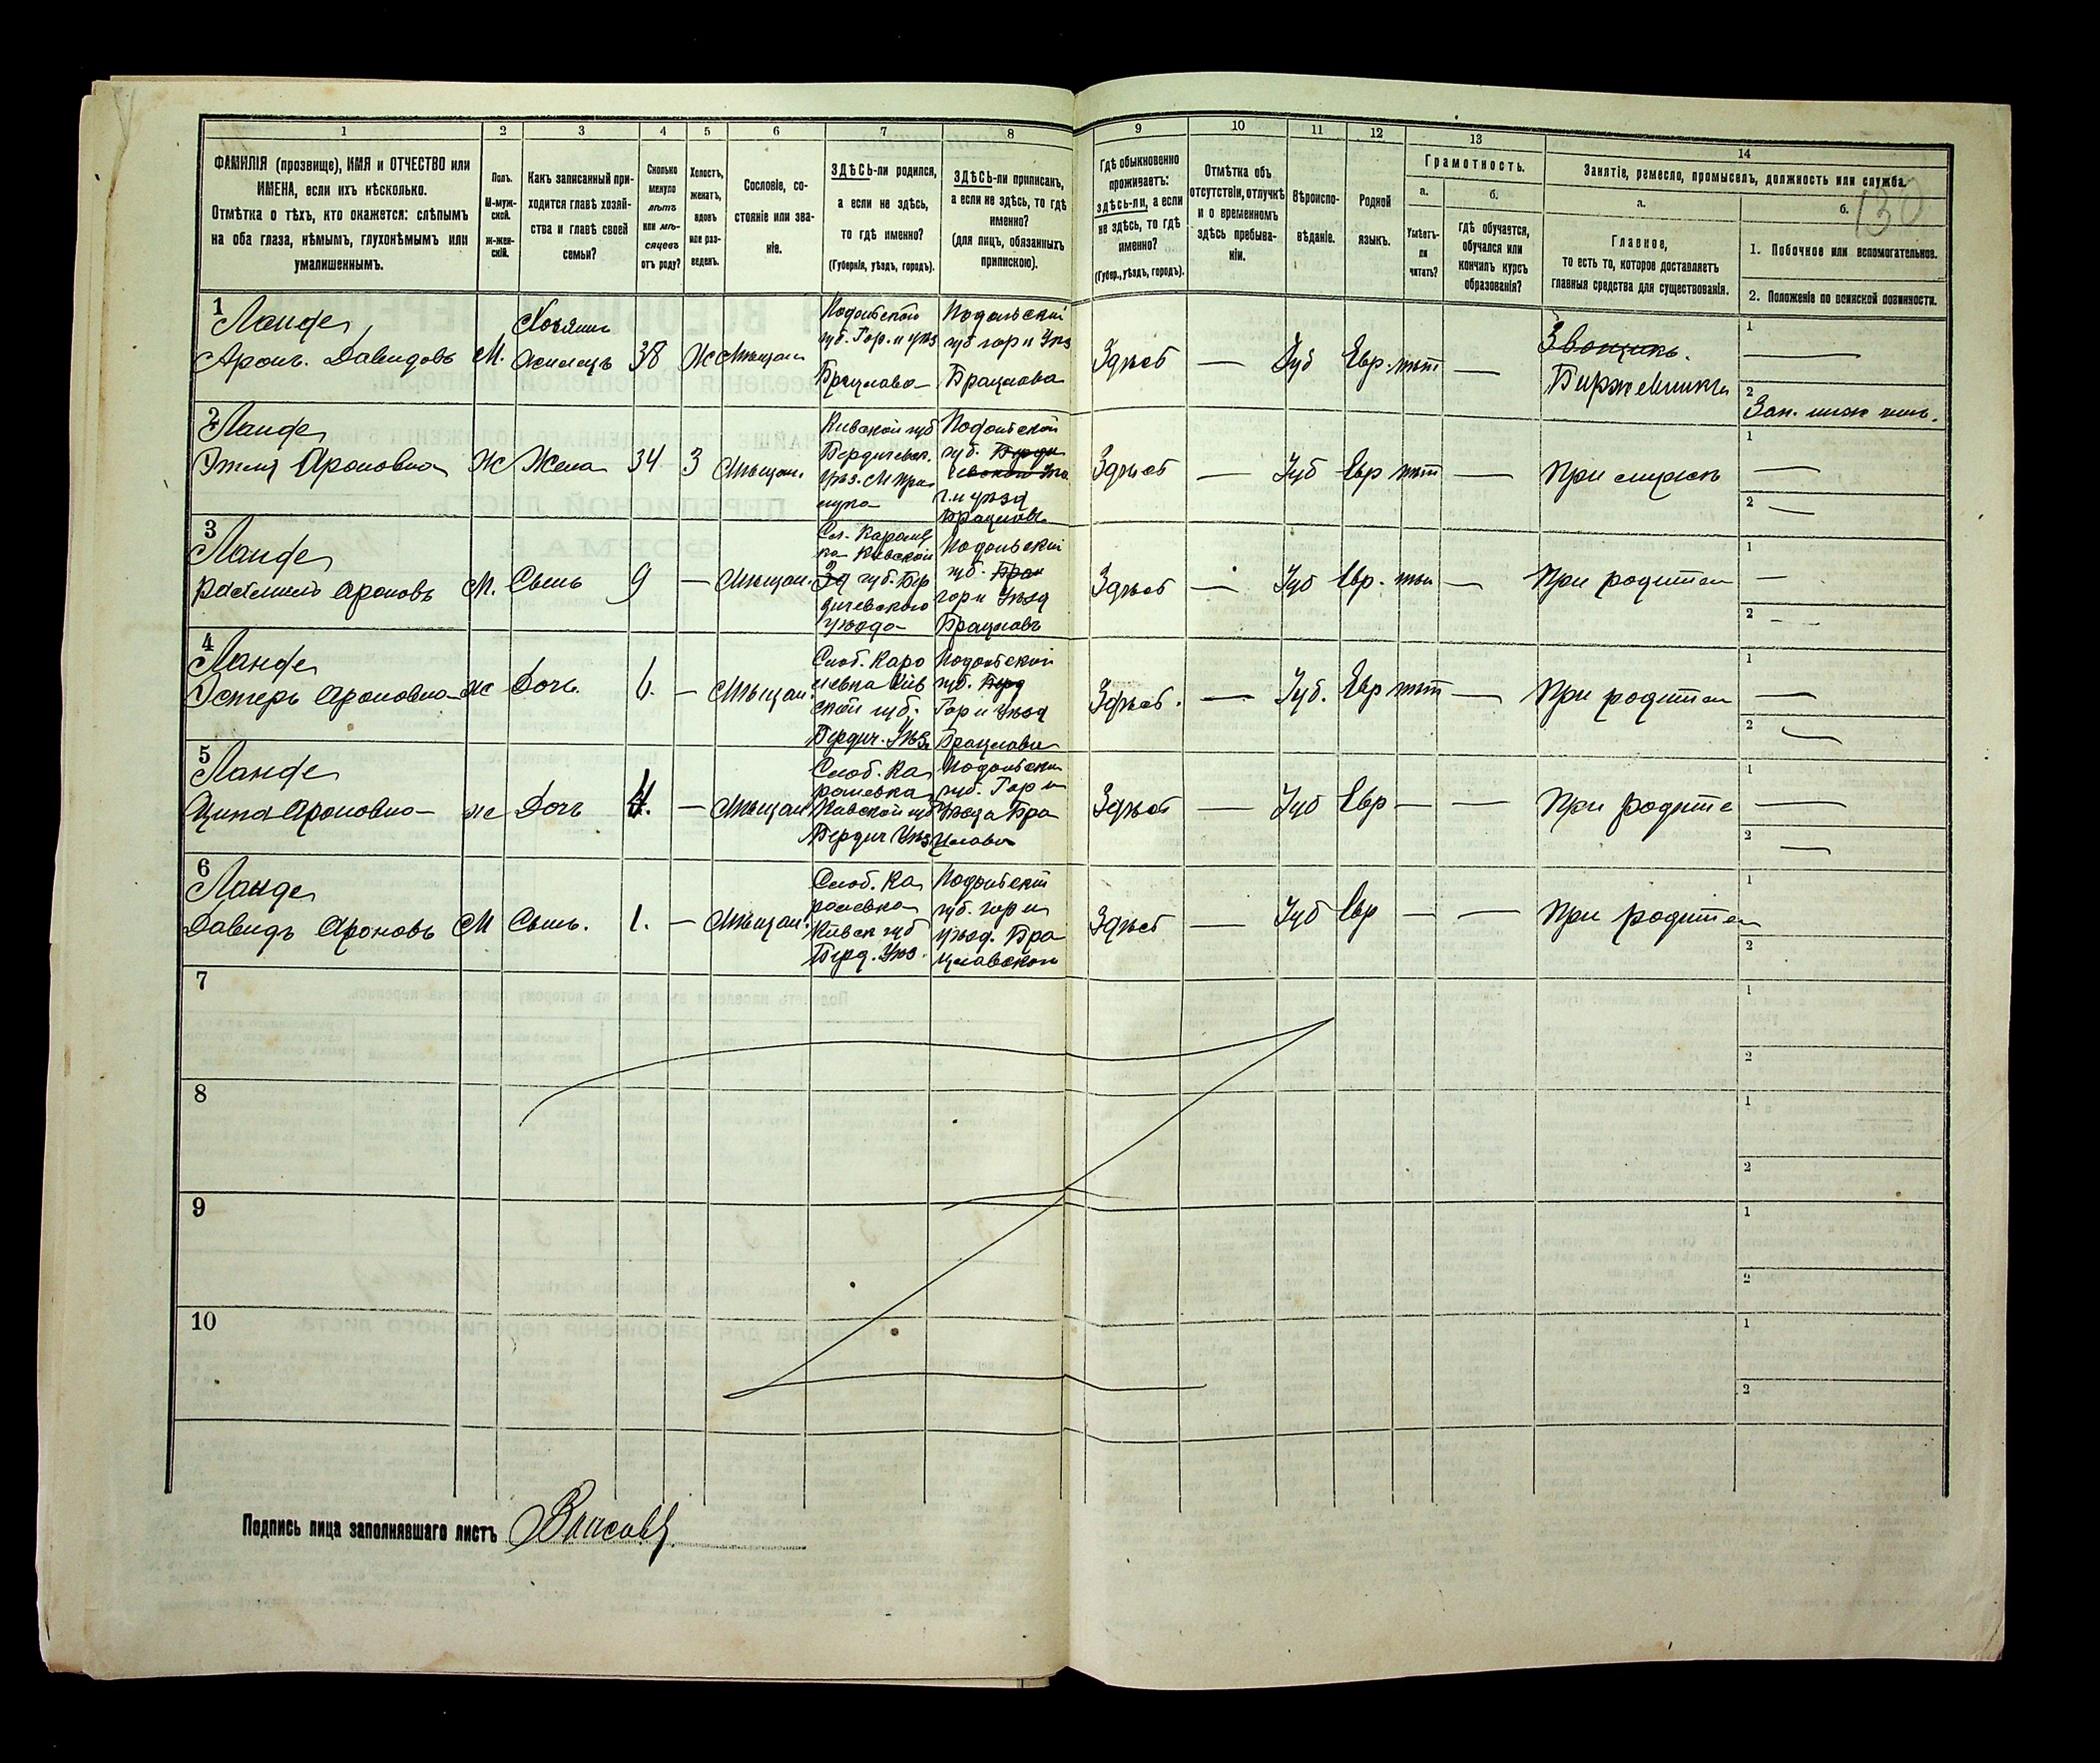 1 2 3 4 5 6 7 8 9 10 11 12 13 14
ФАМИЛІЯ (прозвище), ИМЯ и ОТЧЕСТВО или
ИМЕНА, если ихъ нѣсколько.
Отмѣтка о тѣхъ, кто окажется: слѣпымъ
на оба глаза, нѣмымъ, глухонѣмымъ или
умалишеннымъ.
Полъ.
М-муж-
ской.
Ж-жен-
скій.
Какъ записанный при-
ходится главѣ хозяй-
ства и главѣ своей
семьи?
Сколько
минуло
лѣтъ
или мѣ-
сяцевъ
отъ роду?
Холостъ,
женатъ,
вдовъ
или раз-
веденъ.
Сословіе, со-
стояніе или зва-
ніе.
ЗДѢСЬ-ли родился,
а если не здѣсь,
то гдѣ именно?
(Губернія, уѣздъ, городъ).
ЗДѢСЬ-ли приписанъ,
а если не здѣсь, то гдѣ
именно?
(для лицъ, обязанныхъ
припискою).
Гдѣ обыкновенно
проживаетъ:
здѣсь-ли, а если
не здѣсь, то гдѣ
именно?
(Губер., уѣздъ, городъ).
Отмѣтка объ
отсутствіи, отлучкѣ
и о временномъ
здѣсь пребыва-
ніи.
Вѣроиспо-
вѣданіе.
Родной
языкъ.
Грамотность.
а.
Умѣетъ-
ли
читать?
б.
гдѣ обучается,
обучался или
кончилъ курсъ
образованія?
Занятіе, ремесло, промыселъ, должность или служба.
а.
Главное,
то есть то, которое доставляетъ
главныя средства для существованія.
б.
130
1. Побочное или вспомогательное.
2. Положеніе по воинской повинности.
1
Ланде
Аронъ Давидовъ
М.
Хозяинъ
38
Ж
Мѣщан
Подольской
губ. Гор. и уѣз
Брацлава
Подольской
губ гор и Уѣз
Брацлава
Здѣсь
—
Іуд
Евр.
нѣт
—
Биржевикъ
1 —
2
2
Ланде
Ароновна
Ж
Жена
34
З
Мѣщан.
Кивской губ
Бердичевск.
Подольской
губ.
г. и уѣзд
Брацлавъ
Здѣсь
—
Іуд
Евр
нѣт
—
При мужѣ
1 —
2 —
3
Ланде
Ароновъ
М.
Сынъ
9
—
Мѣщан.
Кивской
губ. Бер
дичевского
уѣзда
Подольской
губ.
гор и Уѣзд
Брацлавъ
Здѣсь
—
Іуд
Евр.
—
При родител
1 —
2 —
4
Ланде
Эстеръ Ароновна
ж
Дочь.
6.
—
Мѣщан.
Слоб. Каро
левка Кив
ской губ.
Бердич. Уѣз.
Подольской
губ.
Гор и Уѣзд
Брацлава
Здѣсь.
—
Іуд.
Евр
нѣт
—
При родител
1 —
2 —
5
Ланде
Ципа Ароновна
ж
Дочь
4.
—
Мѣщан
Слоб. Ка
ролевка
Кивской губ
Бердич Уѣз.
Подольской
губ. Гор и
Уѣзда Бра
цлава
Здѣсь
—
Іуд
Евр
—
—
При родите
1 —
2 —
6
Ланде
Давидъ Ароновъ
М
Сынъ.
1.
—
Мѣщан.
Слоб. Ка
ролевка
Кивск губ
Берд. Уѣз.
Подольской
губ. гор и
уѣзд. Бра
цлавской
Здѣсь
—
Іуд
Евр
—
—
При родител
1
2
7
1
2
8
1
2
9
1
2
10
1
2
Подпись лица заполнявшаго листъ